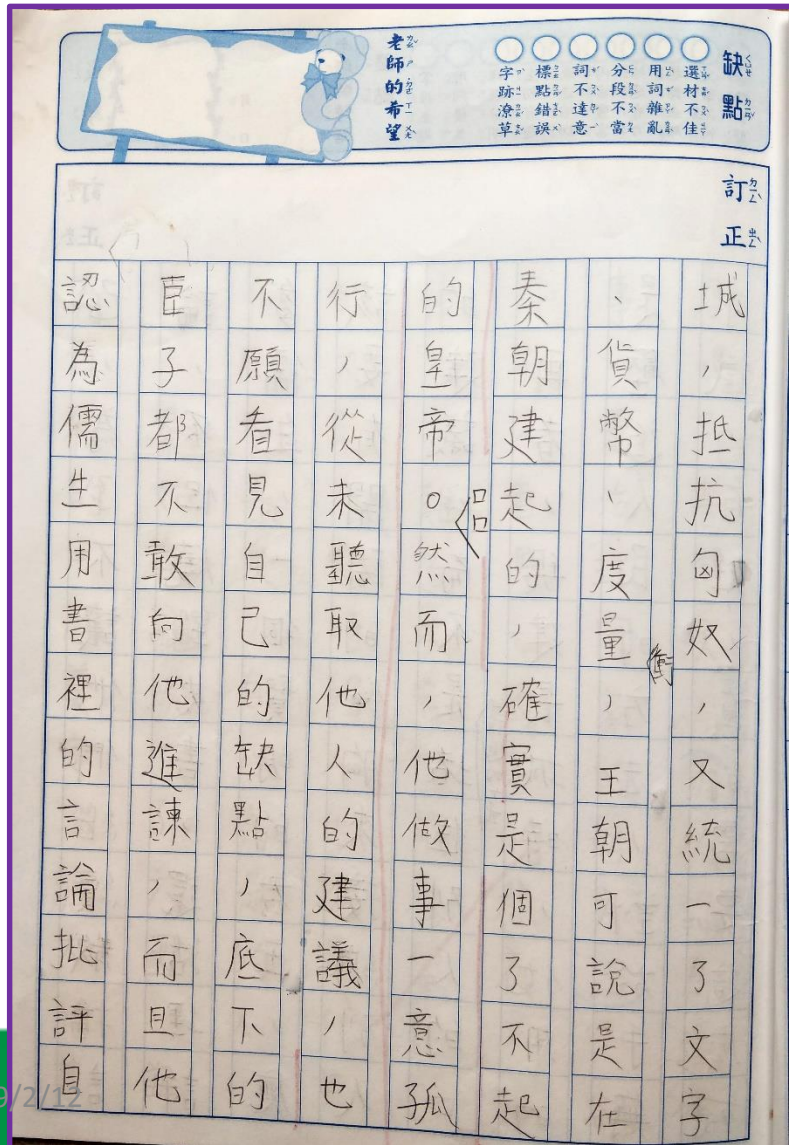 缺點
選材不佳
用詞雜亂
分段不當
詞不達意
標點錯誤
字跡潦草
老師的希望
訂正
城，抵抗匈奴，又統一了文字
、貨幣、度量衡，王朝可說是在
秦朝建起的，確實是個了不起
的皇帝。口口然而，他做事一意孤
行，從未聽取他人的建議，也
不願看見自己的缺點，底下的
臣子都不敢向他進諫，而且他
認為儒生用書裡的言論批評自
9/2/12